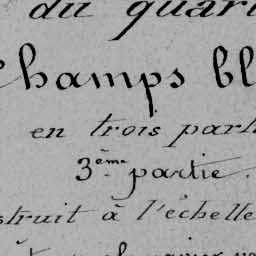 du quart
Champs bl
en trois part
3ème partie.
struit à l'échelle